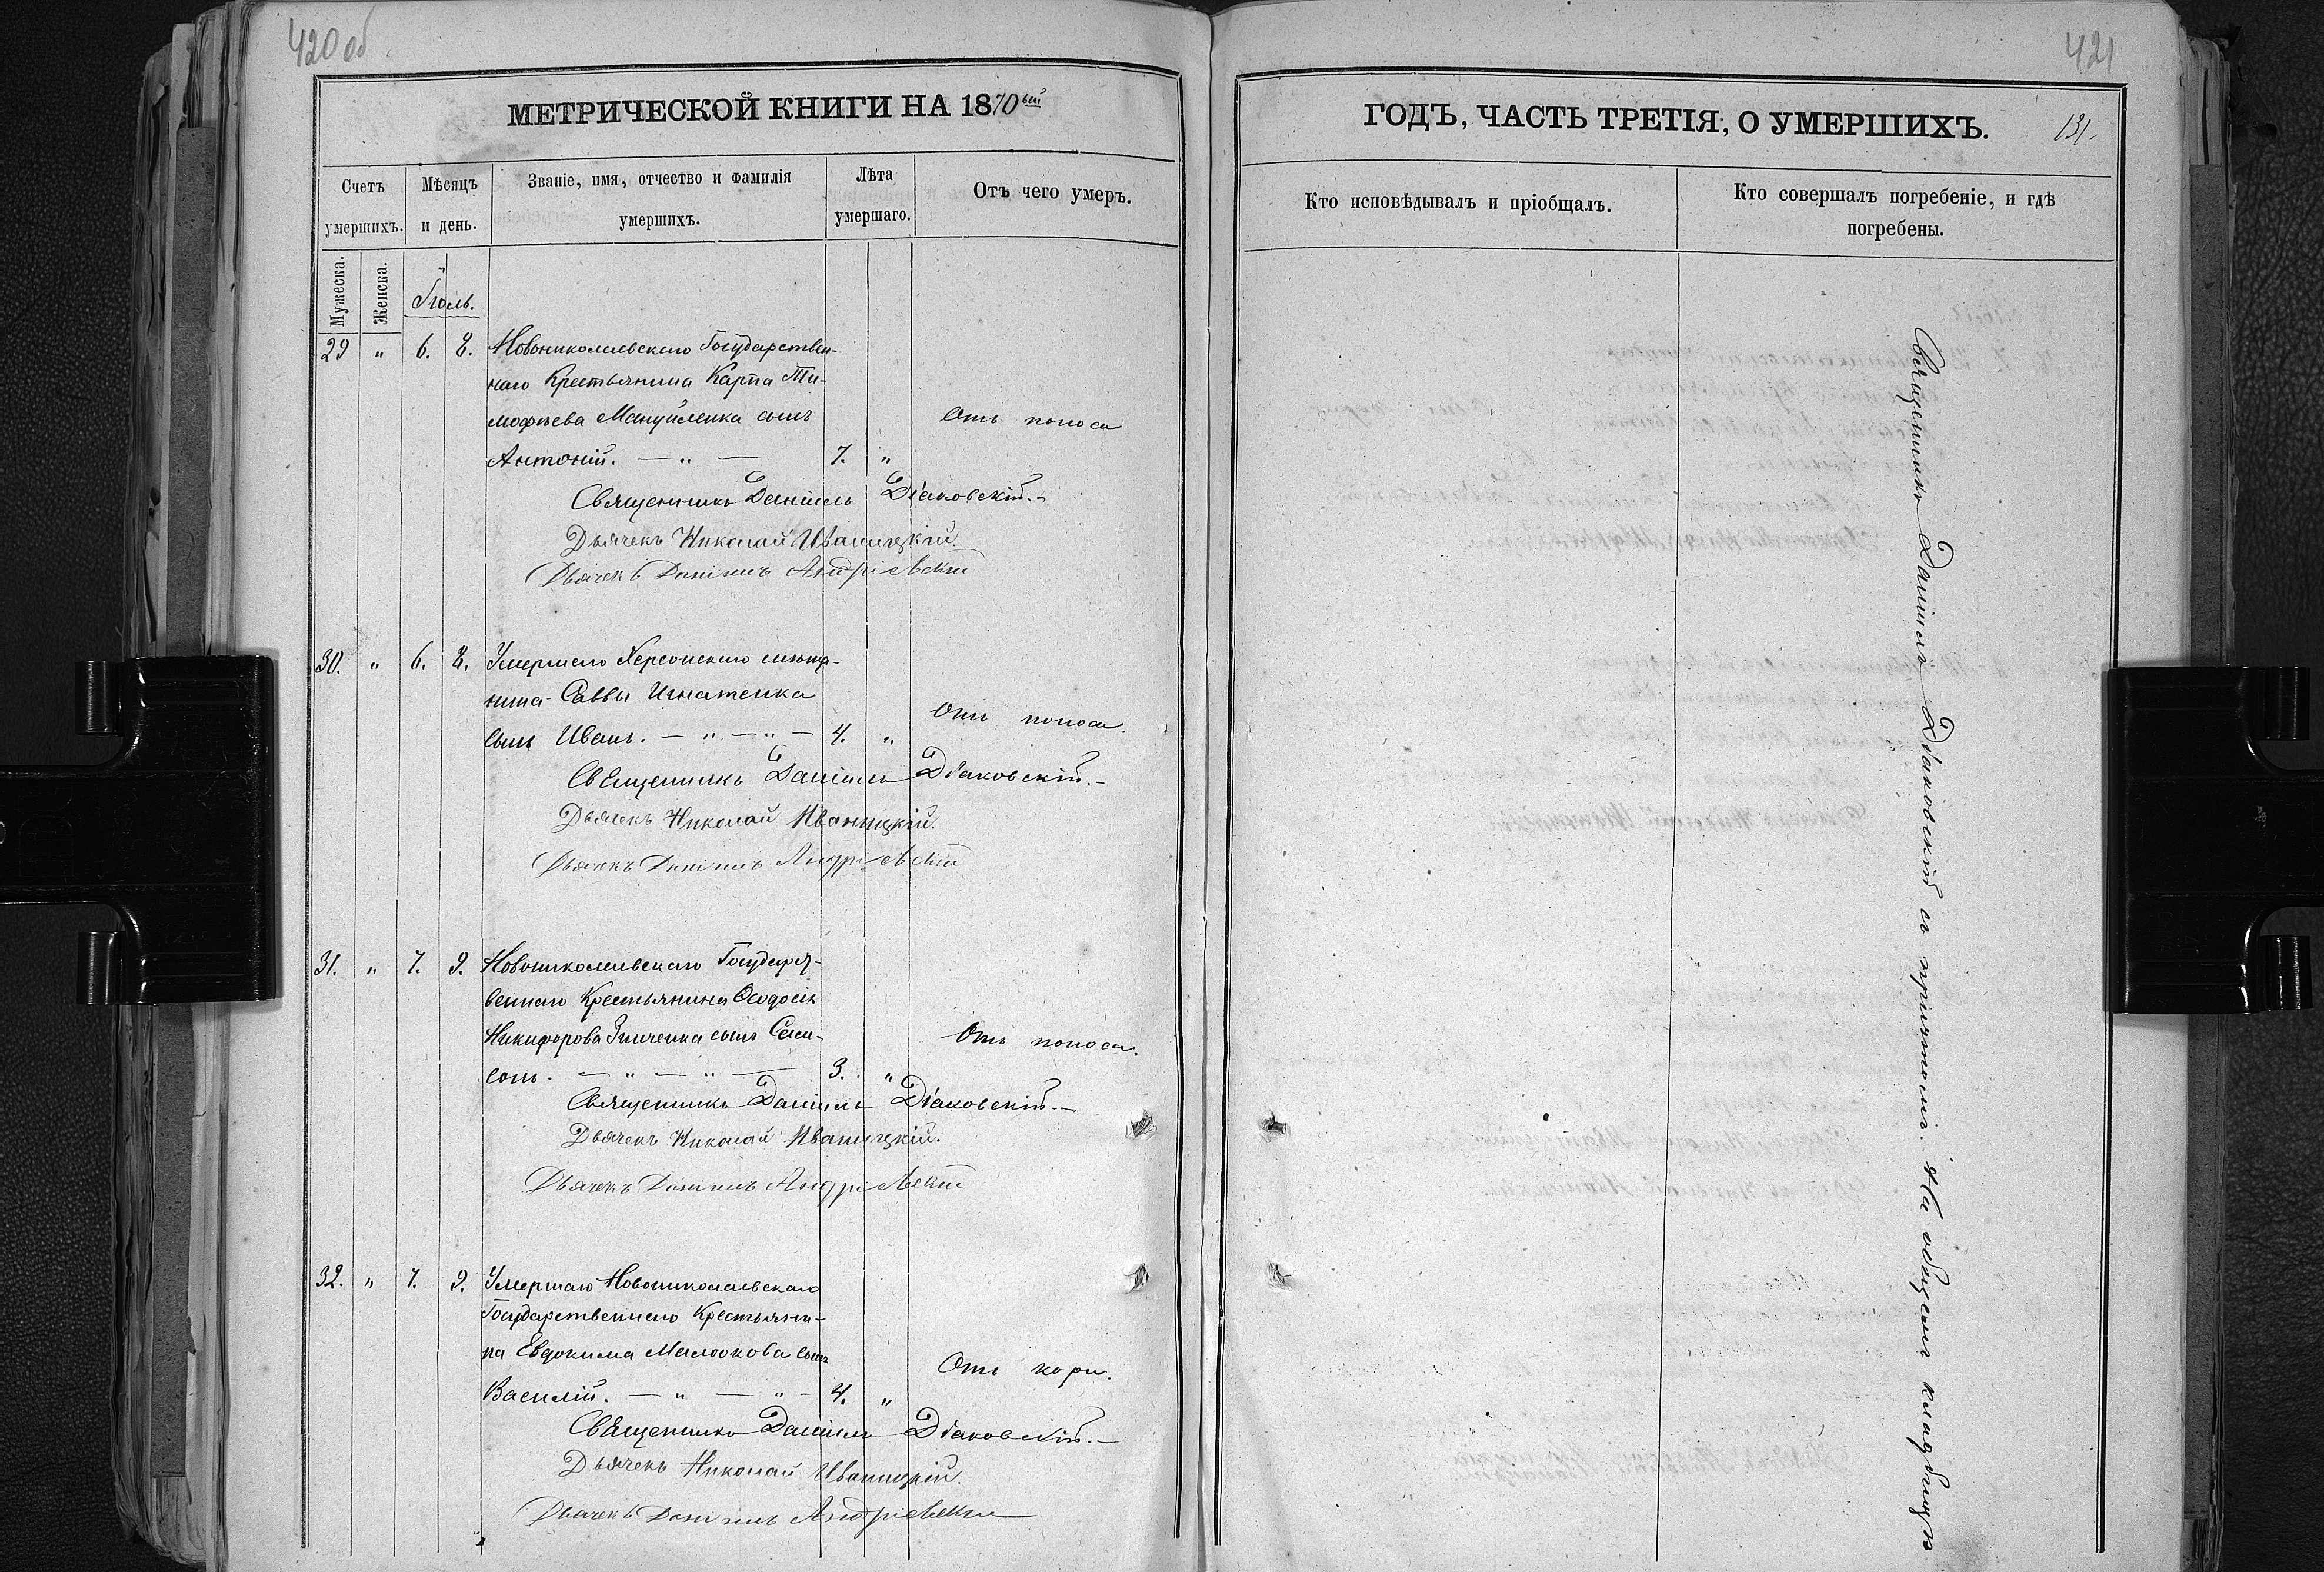 420 об
МЕТРИЧЕСКОЙ КНИГИ НА 1870ый
Счетъ умершихъ.
Мѣсяцъ и день.
Званіе, имя, отчество и фамилія умершихъ.
Лѣта умершаго.
Отъ чего умеръ.
Мужеска.
Женска.
Іюль.
29 " 6. 8. Новониколаевскаго Государствен-
наго Крестьянина Карпа Ти-
мофѣева Мануйленка сынъ
Отъ поноса
Антоній. — " — 7. "
Священникъ Даніилъ Діаковскій.-
Дьячекъ Николай Иваницкій.
Дьячекъ Даніилъ Андріевскій
30. " 6. 8. Умершаго Херсонскаго мѣща-
нина Саввы Игнатенка
Отъ поноса.
сынъ Иванъ. — " — " — 4. "
Священникъ Даніилъ Діаковскій.-
Дьячекъ Николай Иваницкій.
Дьячекъ Даніилъ Андріевскій
31. " 7. 9. Новониколаевскаго Государст-
веннаго Крестьянина Ѳеодосія
Никифорова Зинченка сынъ Сам-
Отъ поноса.
сонъ. — " — " — 3. "
Священникъ Даніилъ Діаковскій.-
Дьячекъ Николай Иваницкій.
Дьячекъ Даніилъ Андріевскій
32. " 7. 9. Умершаго Новониколаевскаго
Государственнаго Крестьяни-
на Евдокима Малоокова сынъ
Отъ кори.
Василій. — " — " - 4. "
Священникъ Даніилъ Діаковскій.-
Дьячекъ Николай Иваницкій.
Дьячекъ Даніилъ Андріевскій
421
ГОДЪ, ЧАСТЬ ТРЕТІЯ, О УМЕРШИХЪ.
131.
Кто исповѣдывалъ и пріобщалъ.
Кто совершалъ погребеніе, и гдѣ
погребены.
Священникъ Даніилъ Діаковскій съ причтомъ. На общемъ кладбищѣ